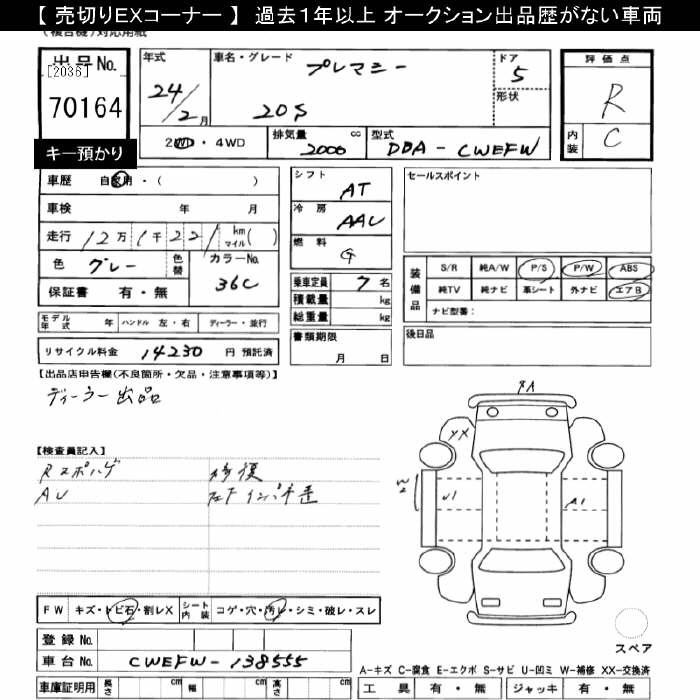 【 売切りEXコーナー 】 過去1年以上 オークション出品歴がない車両
(複合機)対応用紙
出品No. [2036] 70164
キー預かり
年式 24/2月
車名・グレード プレマシー 20S
ドア 5
形状
2WD・4WD 排気量 2000 cc 型式 DBA-CWEFW
評価点 R
内装 C
車歴 自家用・( )
車検 年 月
走行 12万1千221 km マイル( )
色 グレー 色替 カラーNo. 36C
保証書 有・無
シフト AT
冷房 AAC
燃料 G
乗車定員 7名
積載量 kg
総重量 kg
書類期限 月 日
セールスポイント
装備品 S/R 純A/W P/S P/W ABS
純TV 純ナビ 革シート 外ナビ エアB
ナビ型番:
後日品
モデル年式 年 ハンドル 左・右 ディーラー・並行
リサイクル料金 14230 円 預託済
【出品店申告欄(不良箇所・欠品・注意事項等)】
ディーラー出品
【検査員記入】
Rスポハゲ 修復
AU
XA
XX
W2
U1
A1
FW キズ・トビ石・割レX シート内装 コゲ・穴・汚レ・シミ・破レ・スレ
登録No.
車台No. CWEFW-138555
スペア
A-キズ C-腐食 E-エクボ S-サビ U-凹ミ W-補修 XX-交換済
車庫証明用 長さ cm 幅 cm 高さ cm 工具 有・無 ジャッキ 有・無